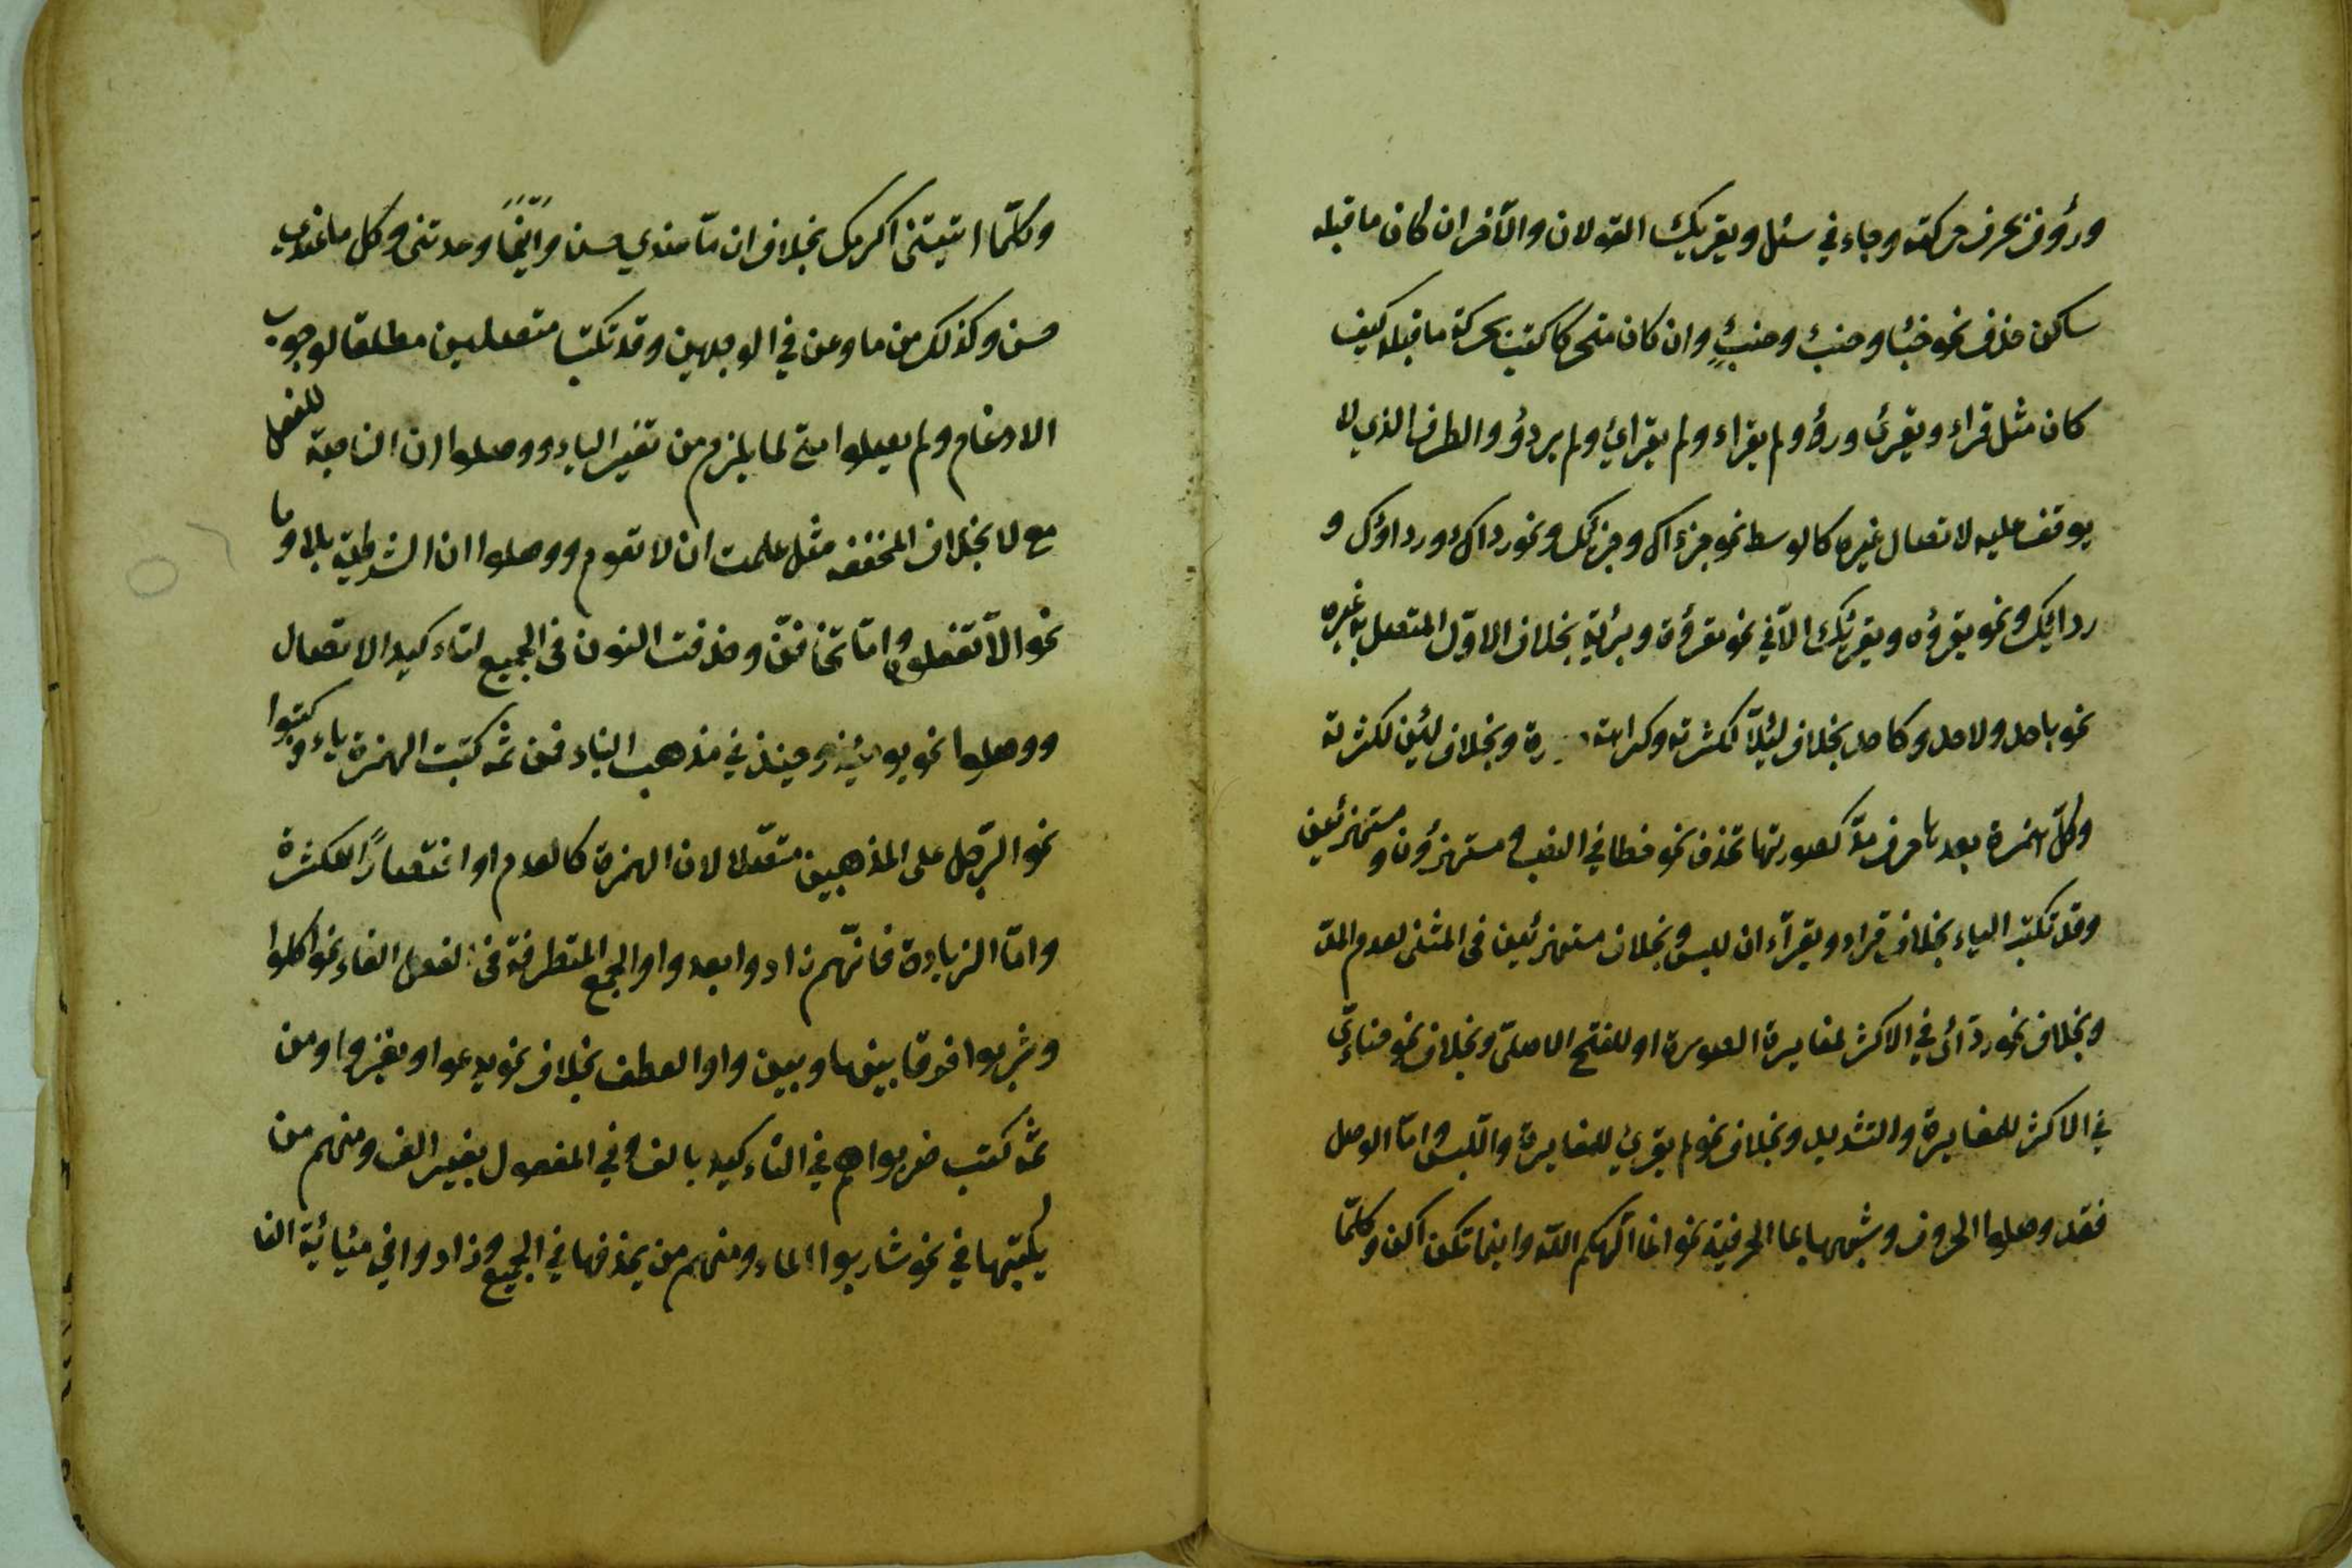 ورؤوف بحرف حركته وجاء في سئل ويقريك القولان والآخر ان كان ما قبله
ساكن حذف نحو خبئا وخبئ وخبئٍ وان كان متحركا كتبت بحركة ما قبله كيف
كان مثل قراء ويقرئ ورؤو ولم يقراء ولم يقرائ ولم يردؤ والطرف الذي لا
يوقف عليه لاتصال غيره كالوسط نحو جزءاك وجزئك ونحو رداك ورداؤك و
ردائك ونحو يقرؤه ويقرئك الا في نحو مقرؤة وبرئة بخلاف الاوّل المتصل به غيره
نحو باحد ولاحد وكاحد بخلاف لئلاّ لكثرته وكراهة رة وبخلاف لئن لكثرته
وكلّ همزة بعدها حرف مدّ كصورتها تحذف نحو خطا في النصب ومستهزؤن ومستهزئين
وقد تكتب الياء بخلاف قراء ويقراءان للبس وبخلاف مستهزئين في المثنى لعدم المدّ
وبخلاف نحو ردائى في الاكثر لمغايرة الصورة او للفتح الاصلىّ وبخلاف نحو حنائىّ
في الاكثر للمغايرة والتشديد وبخلاف نحو لم يقرئ للمغايرة واللّبس وامّا الوصل
فقد وصلوا الحروف وشبهها بما الحرفية نحو انما آلهكم اللّه واينما تكن اكن وكلّما
وكلّما اتيتنى اكرمك بخلاف ان مّا عندي حسن واينما وعدتنى وكل ما عندي
حسن وكذلك من ما وعن في الوجهين وقد تكتبا متصلين مطلقا لوجوب
الادغام ولم يصلوا متى لما يلزم من تغير الياء ووصلوا ان الناصبة للفعل
مع لا بخلاف المخففه مثل علمت ان لا تقوم ووصلوا ان الشرطية بلا وما
نحو الّا تفعلوه وامّا تخافنّ وحذفت النون فى الجميع لتاءكيد الاتصال
ووصلوا نحو يومئذ وحينئذ في مذهب البناء فمن ثمّ كتبت الهمزة ياء وكتبوا
نحو الرّجل على المذهبين متصلا لان الهمزة كالعدم او اختصارًا للكثرة
وامّا الزيادة فانّهم زادوا بعد واو الجمع المتطرفة فى الفعل الفاء نحو اكلوا
وشربوا فرقا بينها وبين واو العطف بخلاف نحو يدعوا ويغزوا ومن
ثمّ كتب ضربوا هم في التاءكيد بالف وفي المفعول بغير الف ومنهم من
يكتبها في نحو شاربوا الماء ومنهم من يحذفها في الجميع وزادوا في مئيائية الفا